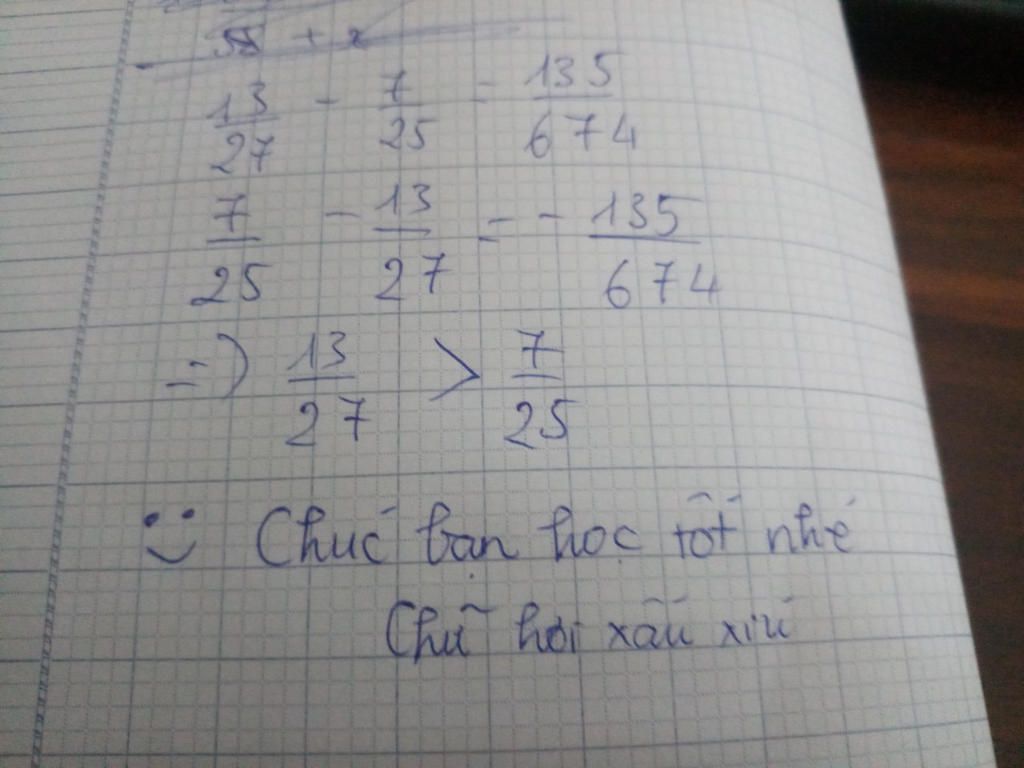 13/27 - 7/25 = 135/674
7/25 - 13/27 = - 135/674
=) 13/27 > 7/25
Chúc bạn học tốt nhé
Chữ hơi xấu xíu